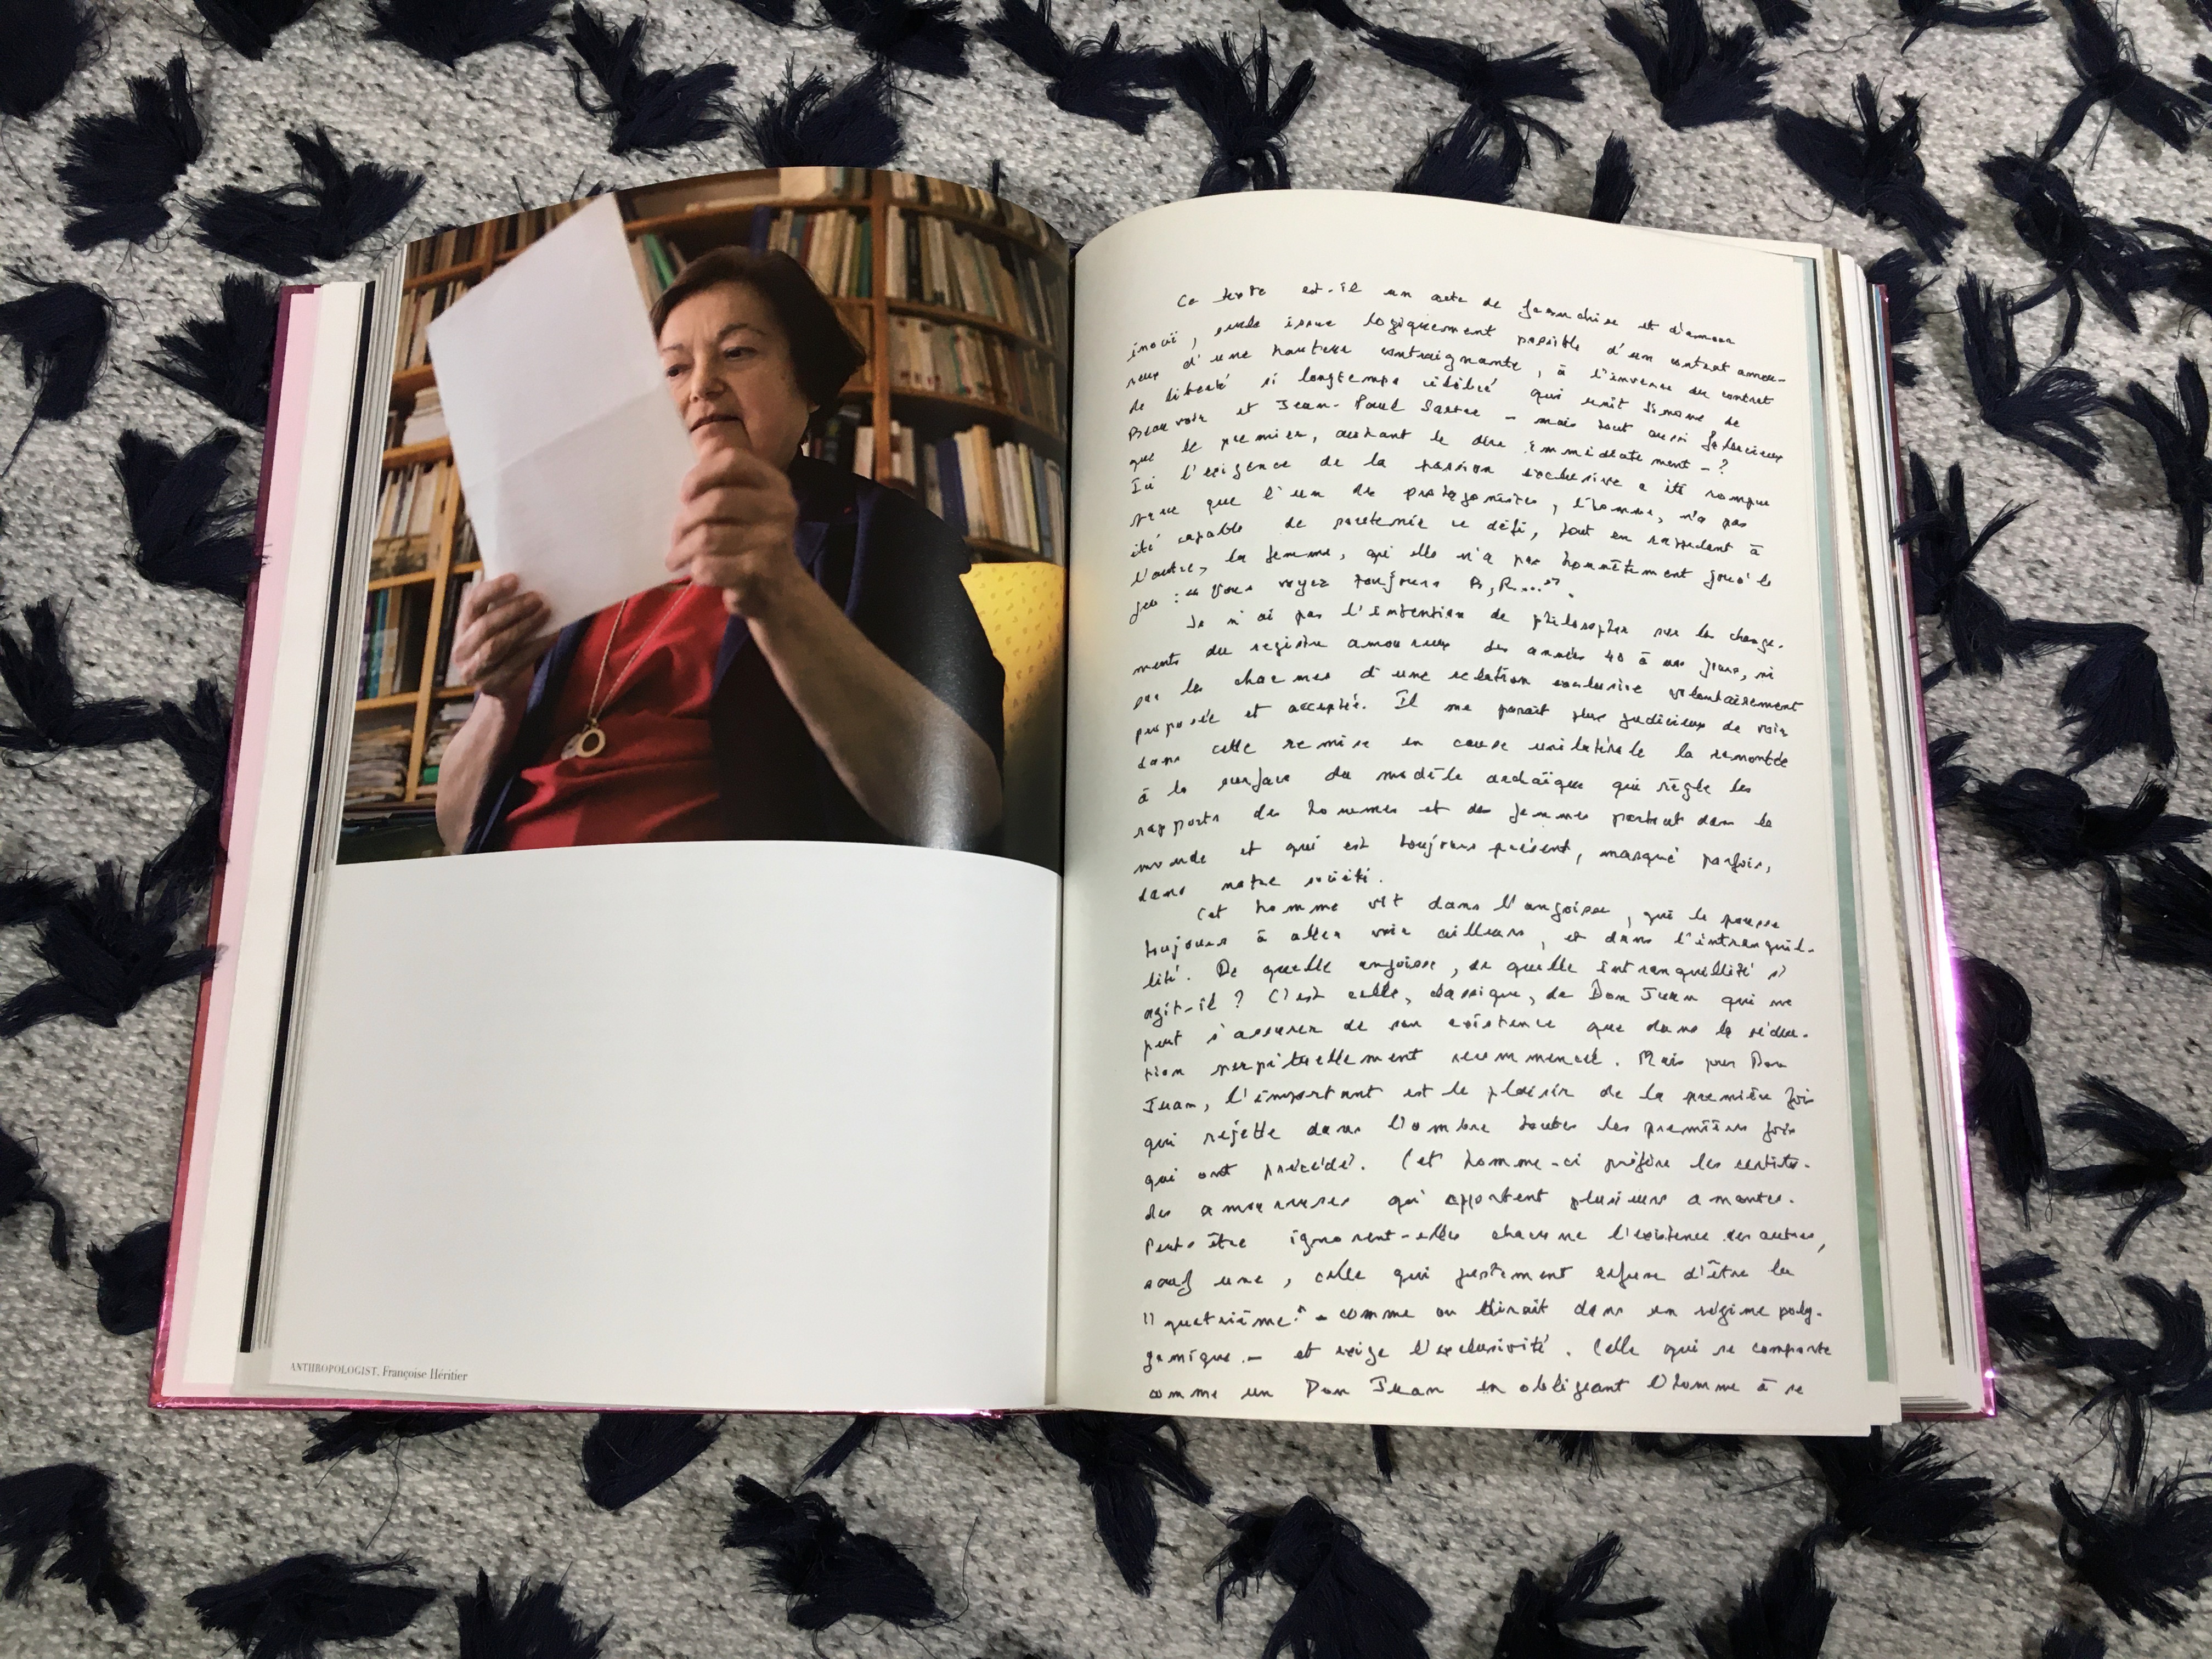 ANTHROPOLOGIST. Françoise Héritier
Ce texte est-il un acte de franchise et d'amour
inouï, seule issue logiquement possible d'un contrat amou-
reux d'une hauteur contraignante, à l'inverse du contret
de liberté si longtemps célébré qui unit Simone de
Beauvoir et Jean-Paul Sartre - mais tout aussi fallacieux
que le premier, autant le dire immédiatement - ?
Ici l'exigence de la passion exclusive a été rompue
parce que l'un des protagonistes, l'homme, n'a pas
été capable de soutenir ce défi, tout en rappelant à
l'autre, la femme, qui elle n'a pas honnêtement joué le
jeu : "Vous voyez toujours B, R...".
Je n'ai pas l'intention de philosopher sur les change-
ments du registre amoureux des années 40 à nos jours, ni
sur les charmes d'une relation exclusive volontairement
proposée et acceptée. Il me paraît plus judicieux de voir
dans cette remise en cause unilatérale la remontée
à la surface du modèle archaïque qui règle les
rapports des hommes et des femmes partout dans le
monde et qui est toujours présent, masqué parfois,
dans notre société.
Cet homme vit dans l'angoisse, qui le pousse
toujours à aller voir ailleurs, et dans l'intranquil-
lité. De quelle angoisse, de quelle intranquillité s'
agit-il ? C'est celle, classique, de Don Juan qui ne
peut s'assurer de son existence que dans la séduc-
tion perpétuellement recommencée. Mais pour Don
Juan, l'important est le plaisir de la première fois
qui rejette dans l'ombre toutes les premières fois
qui ont précédé. Cet homme-ci préfère les certitu-
des amoureuses qu'apportent plusieurs amantes.
Peut-être ignorent-elles chacune l'existence des autres,
sauf une, celle qui justement refuse d'être la
"quatrième" - comme on dirait dans un régime poly-
gamique - et exige l'exclusivité. Celle qui se comporte
comme un Don Juan en obligeant l'homme à se